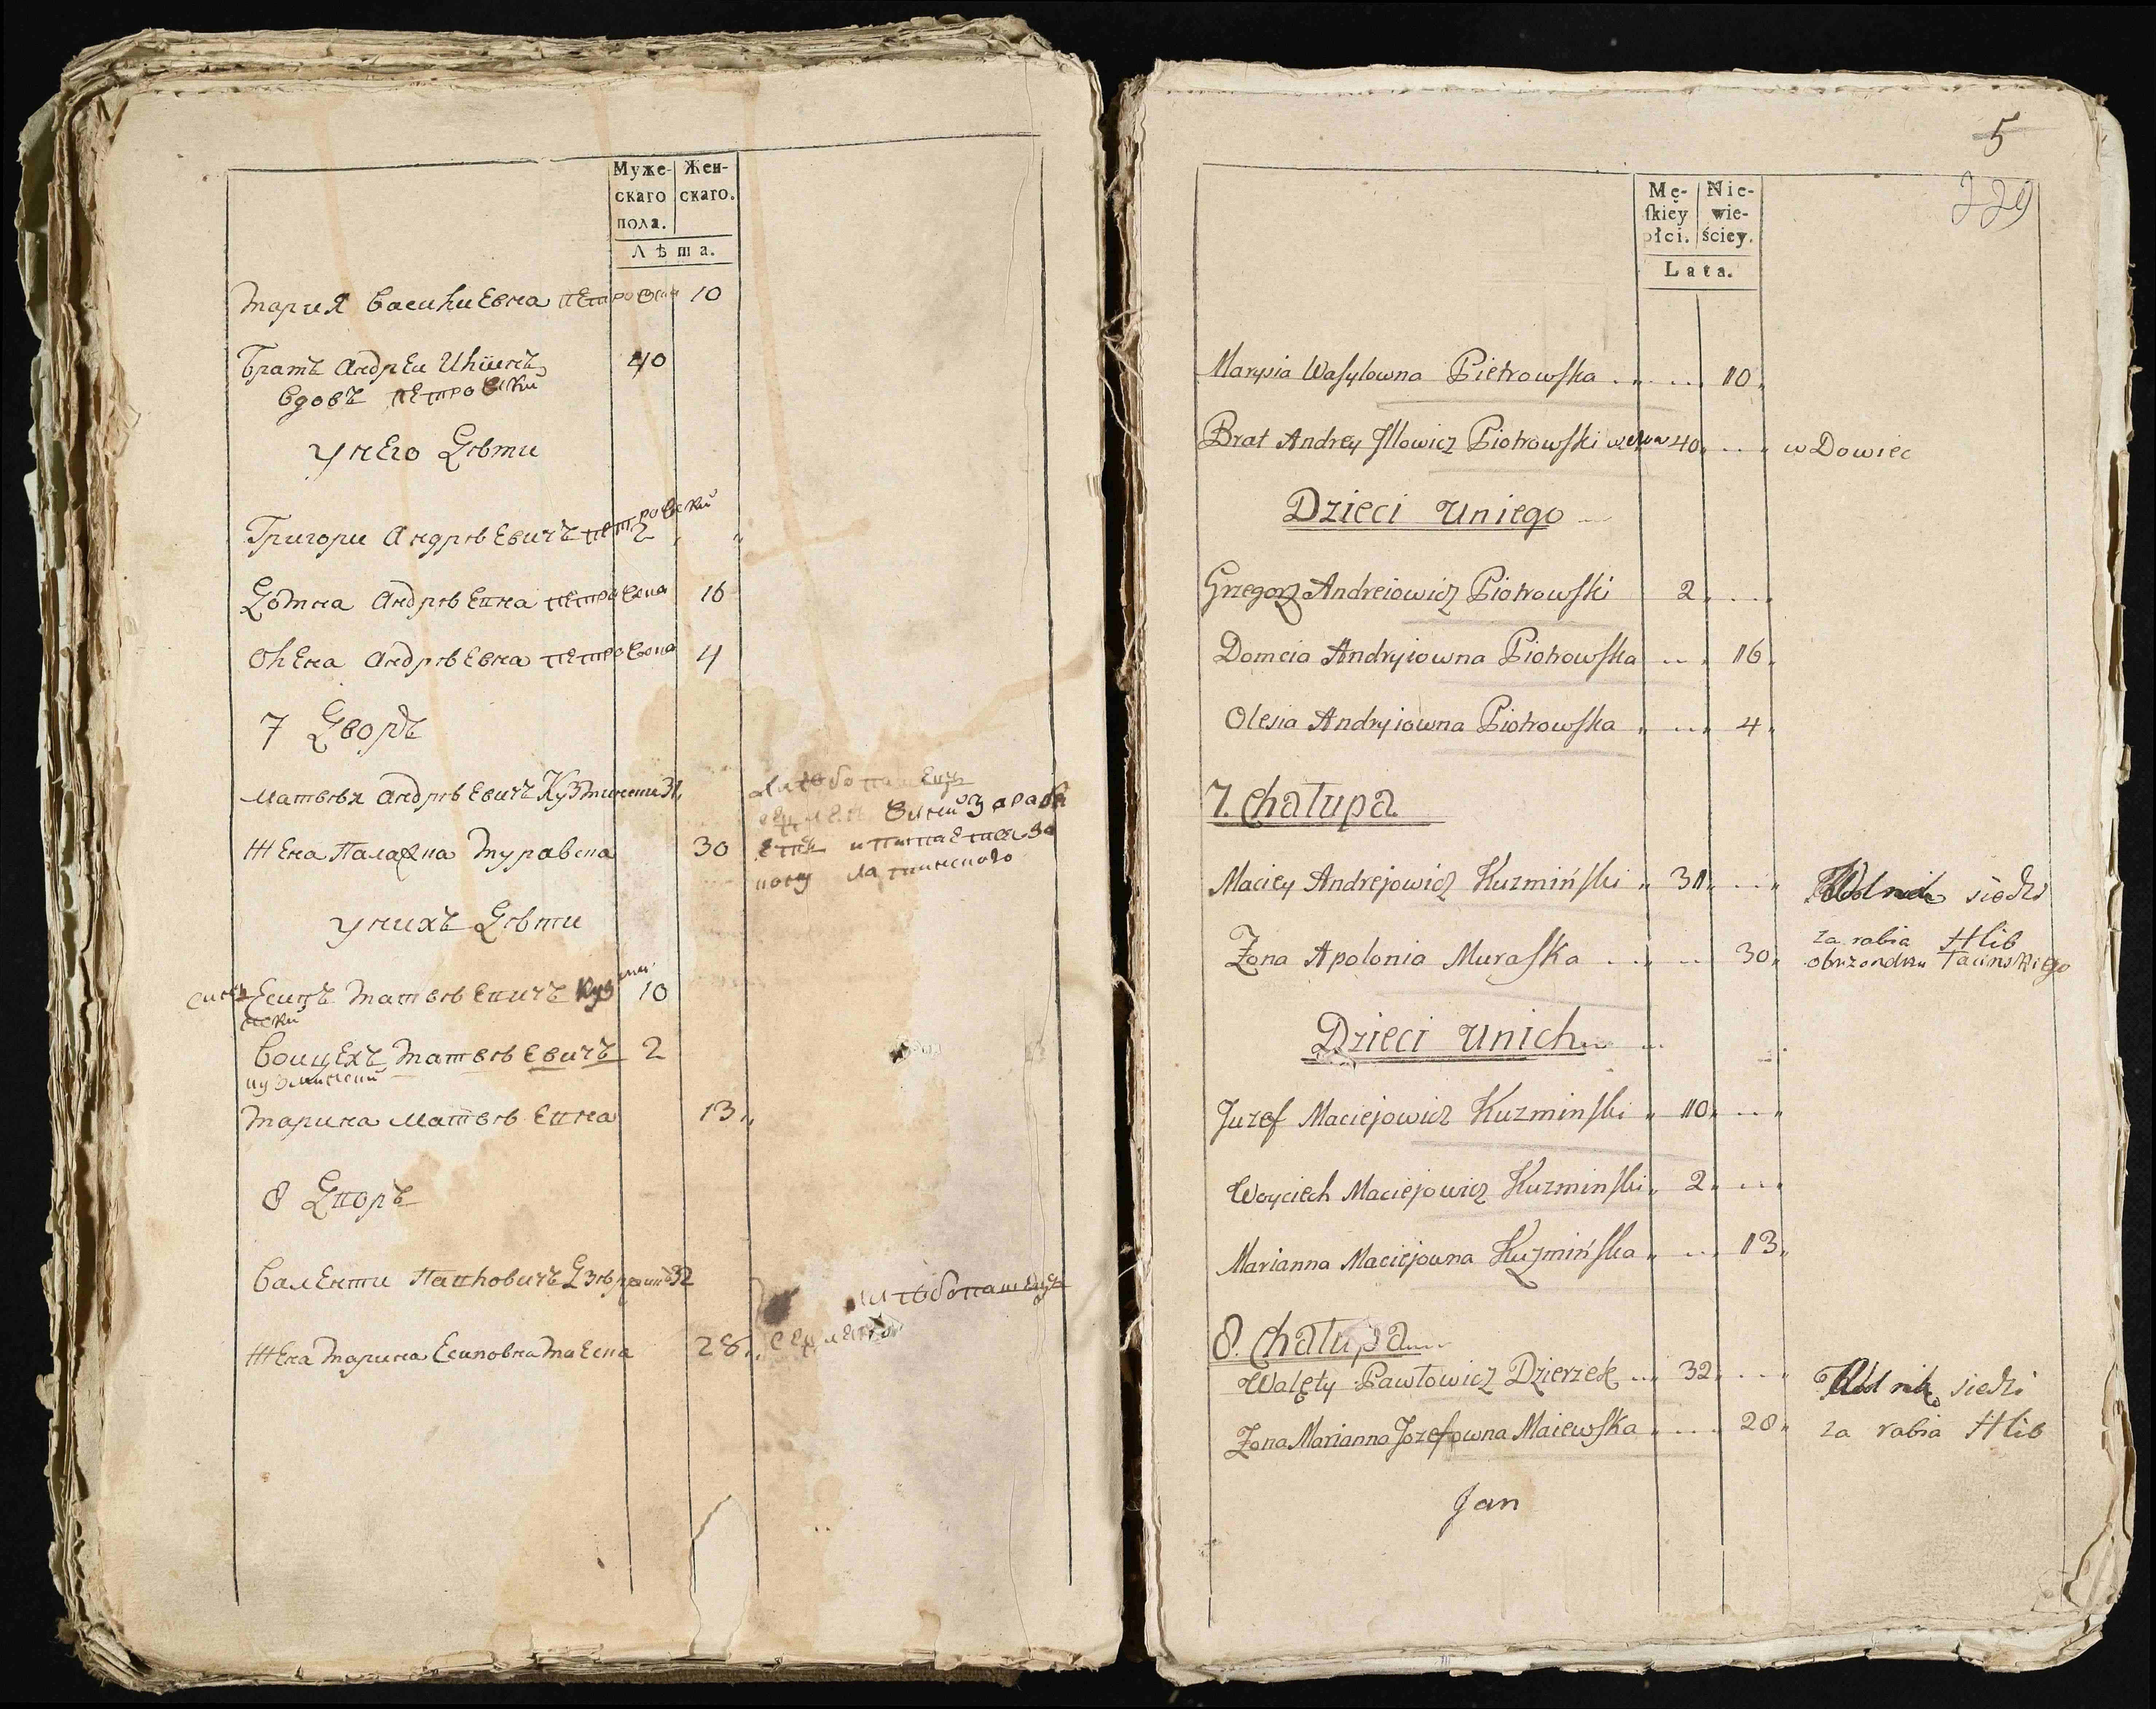 Муже- Жен-
скаго скаго.
пола.
Лѣта.
Мария Василиевна Петровска 10
Братъ Андреи Илиинъ 40
вдовъ Петровски
У него Дѣти
Григори Андрѣевичъ Петровски 2
Домна Андрѣевна Петровска 16
Олена Андрѣевна Петровска 4
7 Дворъ
Матвѣи Андрѣевичъ Кузмински 31
Жена Палажна Муравска 30
У нихъ Дѣти
сынъ Есипъ Матвѣевичъ Кузмин 10
ски
Воицехъ Матвѣевичъ 2
кузмински
Марина Матвѣевна 13
8 Дворъ
Валенти Павловичъ 32
Жена Марина Есиповна Маевска 28
5
229
Mę- Nie-
skiey wie-
płci. ściey.
Lata.
Marysia Wasylowna Pietrowska 10
Brat Andrey Jllowicz Piotrowski 40 w Dowiec
Dzieci uniego
Grzegorz Andreiowicz Piotrowski 2
Domcia Andryiowna Piotrowska 16
Olesia Andryiowna Piotrowska 4
7. Chałupa
Maciey Andrejowicz Kuzmiński 31 Rolnik siedzi
Żona Apolonia Muraska 30 za rabia Hlib
obrzondku Łacinskiego
Dzieci unich
Juzef Maciejowicz Kuzminski 10
Woyciech Maciejowicz Kuzminski 2
Marianna Maciejowna Kuzmińska 13
8. Chałupa
Walęty Pawłowicz Dzierzek 32 Rolnik siedzi
Zona Marianna Jozefowna Maiewska 28 za rabia Hlib
Jan